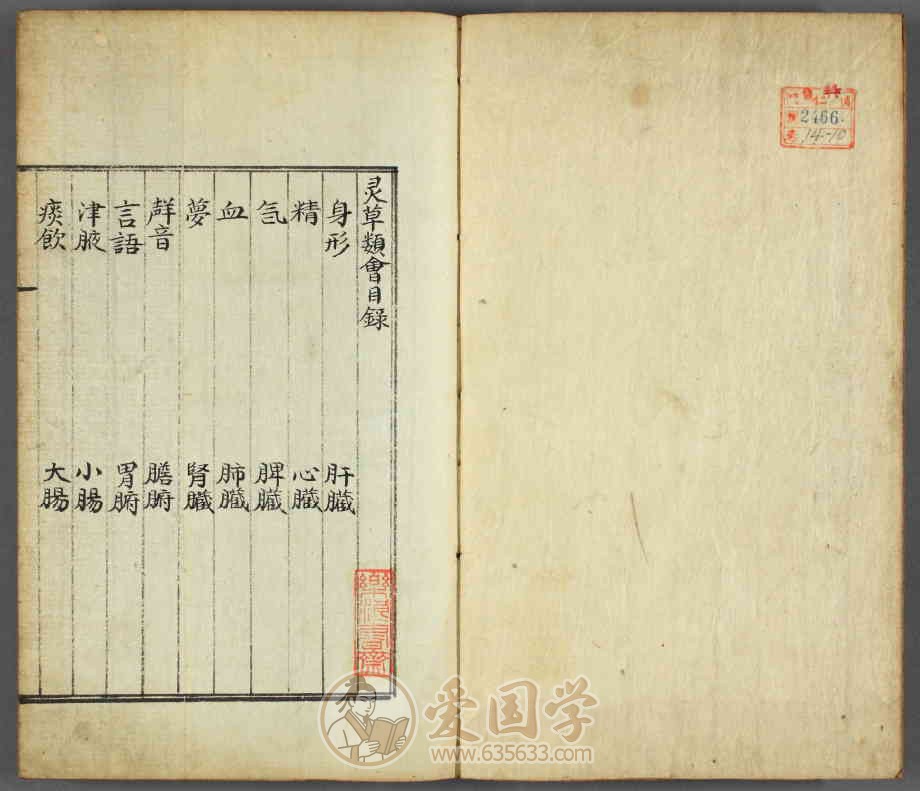 灵草類會目錄
身形 肝臓
精 心臓
氣 脾臓
血 肺臓
夢 腎臓
聲音 膽腑
言語 胃腑
津腋 小腸
痰飲 大腸
2466
14-10
爱国学
www.635633.com